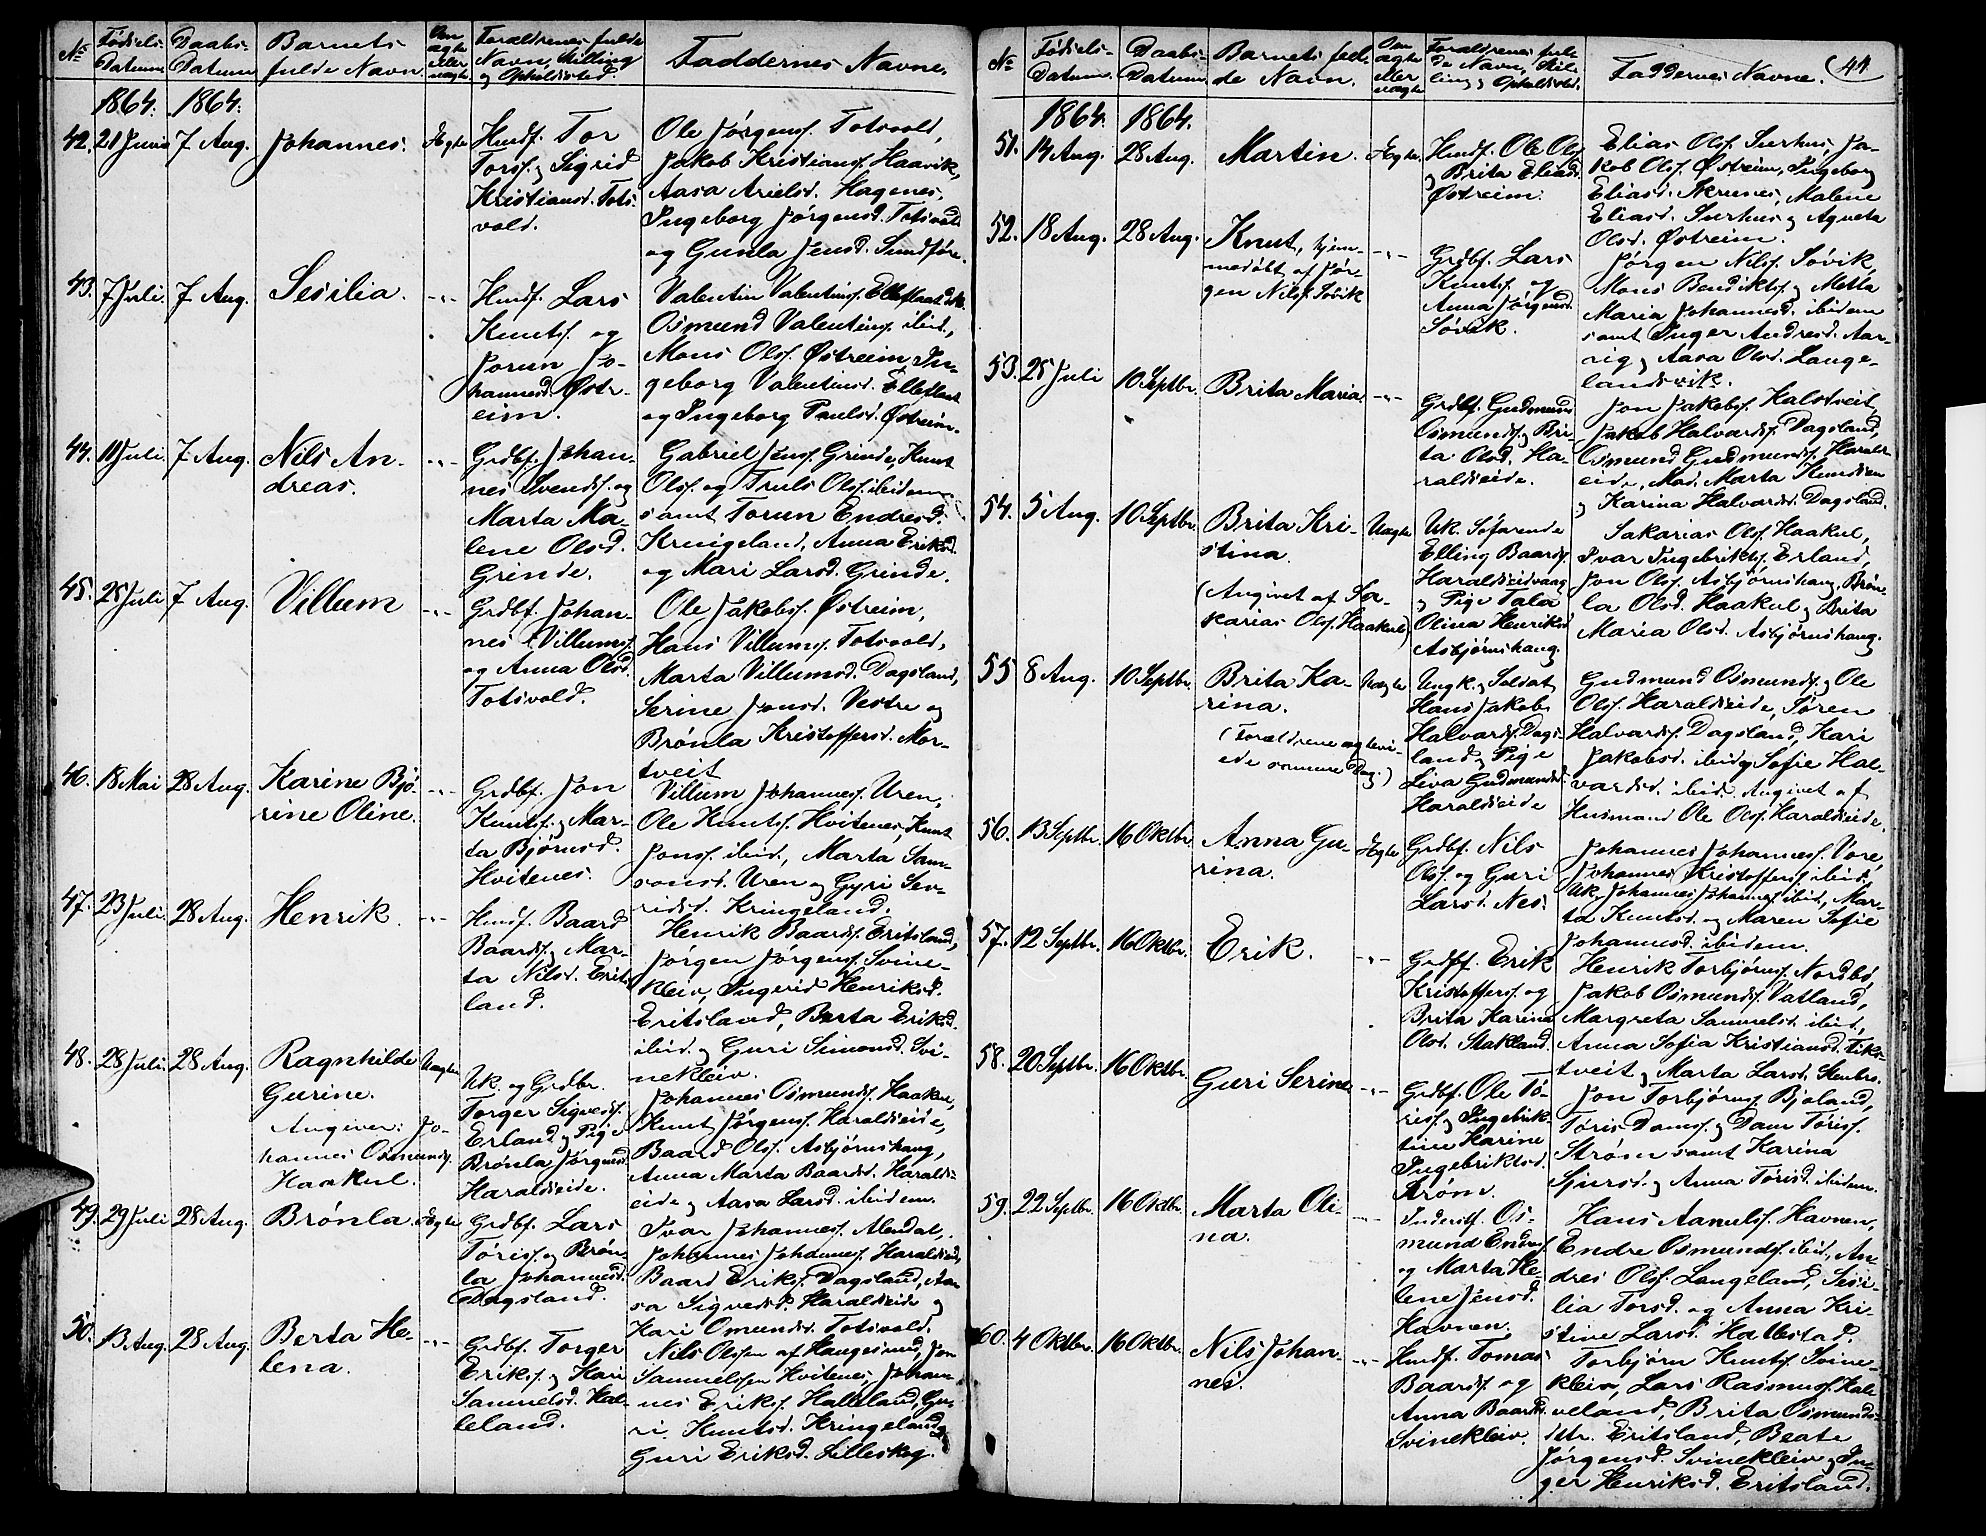 No Fødsels-Datum. Daabs-Datum Barnets fulde Navn. Om ægte eller uægte Forældrenes fulde Navn, Stilling og Opholdssted Faddernes Navne.
1864. 1864.
42. 21 Juni 7 Aug. Johannes. Ægte
Husf. Tor
Torsf. og Sigrid
Kristiansd. Tots-
vold.
Ole Jørgensf. Totsvold,
Jakob Kristiansf. Haavik,
Aasa Arielsd. Hagenes,
Ingeborg Jørgensd. Totsvold
og Gunla Jensd. Sundføre.
43. 7 Juli. 7 Aug. Sesilia. -"-
Husf. Lars
Knutsf. og
Jorun Jo-
hannesd. Østr-
eim.
Valentin Valentinsf.
Osmund Valentinsf. ibid,
Mons Olsf. Østreim, In-
geborg Valentinsd.
og Ingeborg Paulsd. Østreim.
44. 10 Juli. 7 Aug. Nils An-
dreas. -"-
Grdbf. Johan-
nes Svendsf. og
Marta Ma-
lene Olsd.
Grinde.
Gabriel Jensf. Grinde, Knut
Olsf. og Truls Olsf. ibidem
samt Torun Endresd.
Kringeland, Anna Eriksd.
og Mari Larsd. Grinde.
45. 25 Juli 7 Aug. Villum -"-
Grdbf. Johan-
nes Villumsf.
og Anna Olsd.
Totsvold.
Ole Jakobsf. Østreim,
Hans Villumsf. Totsvold,
Marta Villumsd. Dagsland,
Serine Jonsd. Vestre og
Brønla Kristoffersd. Mor-
tveit
46. 18 Mai 28 Aug. Karine Bjø-
rine Oline. -"-
Grdbf. Jon
Knutsf. og Mar-
ta Bjørnsd.
Hvitenes.
Villum Johannesf. Uren,
Ole Knutsf. Hvitenes, Knut
Jonsf. ibid., Marta Sam-
sonsd. Uren og Gyri Sev-
ridsd. Kringeland.
47. 23 Juli. 28 Aug. Henrik. -"-
Husf. Baard
Baardsf. og Mar-
ta Nilsd. Erits-
land.
Henrik Baardsf. Eritsland,
Jørgen Jørgensf. Svine-
kleiv, Ingerid Henriksd.
Eritsland, Berta Eriksd.
ibid. og Guri Simonsd. Svi-
nekleiv.
48. 28 Juli. 28 Aug. Ragnhilde
Gurine.
Angiver: Jo-
hannes Osmundsf.
Haakul. Uægte
Uk. og Grdbr.
Torger Sigvedsf.
Erland og Pige
Brønla Jørgensd.
Haraldseide.
Johannes Osmundsf. Haakul,
Knut Jørgensf. Haraldseide,
Baard Olsf. Asbjørnshaug,
Anna Marta Baardsd. Haralds-
eide og Aasa Larsd. ibidem.
49. 29 Juli 28 Aug. Brønla. Ægte
Grdbf. Lars
Tørisf. og Brøn-
la Johannesd.
Dagsland.
Ivar Johannesf. Alendal,
Johannes Johannesf. Haraldseid,
Baard Eriksf. Dagsland, Aa-
sa Sigvedsd. Haraldseide og
Kari Omundsd. Totsvold.
50. 13 Aug. 28 Aug. Berta He-
lena. -"-
Grdbf. Torger
Eriksf. og Kari
Samuelsd. Hal-
leland.
Nils Olssen af Haugesund, Jon
Samuelssen Hvitenes, Johan-
nes Eriksf. Halleland, Gu-
ri Knutsd. Kringeland og
Guri Eriksd. Lilleskog.
No Fødsels-Datum. Daabs-Datum. Barnets ful-de Navn. Om ægte eller uægte Forældrenes ful-de Navn, Stil-ling og Opholdssted. Faddernes Navne. (41
1864. 1864.
51. 14 Aug. 28 Aug. Martin. Ægte.
Husf. Ole Olsf.
og Brita Eliasd.
Østreim.
Elias Olsf. Surhus, Ja-
kob Olsf. Østreim, Ingeborg
Eliasd. Skrunes, Malene
Eliasd. Surhus og Agneta
Olsd. Østreim.
52. 18 Aug. 28 Aug. Knut, hjem-
medøbt af Jør-
gen Nilsf. Søvik -"-
Grdbf. Lars
Knutsf. og
Anna Jørgensd.
Søvik.
Jørgen Nilsf. Søvik,
Mons Bendiktsf. og Metta
Maria Johannesd. ibidem
samt Inger Andresd. Aar-
vig og Aasa Olsd. Lange-
landsvik.
53. 25 Juli 10 Septbr. Brita Maria. -"-
Grdbf. Gudmund
Osmundsf. og Bri-
ta Olsd. Ha-
raldseide.
Jon Jakobsf. Halstveit,
Jakob Halvardsf. Dagsland,
Osmund Gudmundsf. Haralds-
eide, Mad. Marta
og Karina Halvardsd. Dagsland.
54. 5 Aug. 10 Septbr. Brita Kri-
stina.
(Angivet af Sa-
karias Olsf. Haakul) Uægte
Uk. Søfarende
Elling Baardsf.
Haraldseidvaag
og Pige Tala
Olina Henriksd.
Asbjørnshaug.
Sakarias Olsf. Haakul,
Ivar Ingebriktsf. Erland,
Jon Olsf. Asbjørnshaug, Brøn-
la Olsd. Haakul og Brita
Maria Olsd. Asbjørnshaug.
55 8 Aug. 10 Septbr. Brita Ka-
rina.
(Forældrene ægtevi-
ede samme Dag.) Uægte
Ungk. og Soldat
Hans Jakob
Halvardsf. Dags-
land og Pige
Siva Gudmundsd.
Haraldseide
Gudmund Osmundsf. og Ole
Olsf. Haraldseide, Søren
Halvardsf. Dagsland, Kari
Jakobsd. ibid. og Sofie Hal-
vardsd. ibid. Angivet af
Husmand Ole Olsf. Haraldseide.
56. 13 Septbr. 16 Oktbr. Anna Gu-
rina. Ægte
Grdbf. Nils
Olsf. og Guri
Larsd. Nes.
Johannes Johannesf. Vore,
Johannes Kristoffersf. ibid.,
Uk. Johannes Johannesf. ibid., Mar-
ta Knutsd. og Maren Sofie
Johannesd. ibidem.
57. 12 Septbr. 16 Oktbr. Erik. -"-
Grdbf. Erik
Kristoffersf. og
Brita Karina
Olsd. Stakland.
Henrik Torbjørnsf. Nordbø,
Jakob Osmundsf. Vatland,
Margreta Samuelsd. ibid.,
Anna Sofia Kristiansd. Tiks-
tveit og Marta Larsd.
58. 20 Septbr. 16 Oktbr. Guri Serine -"-
Grdbf. Ole Tø-
risf. og Ingebrik-
tine Karine
Ingebriktsd.
Strøm.
Jon Torbjørnsf. Bjoland,
Tøris Daonsf. og Daun Tørisf.
Strøm samt Karina
Sjursd. og Anna Tørisd. ibidem.
59. 22 Septbr. 16 Oktbr. Marta Oli-
na. -"-
Inderstf. Os-
mund Endresf.
og Marta He-
lene Jensd.
Havnen.
Hans Aanulsf. Havnen,
Endre Osmundsf. ibid., An-
dres Olsf. Langeland, Sesi-
lia Torsd. og Anna Kri-
stine Larsd. Hallestad.
60. 4 Oktbr. 16 Oktbr. Nils Johan-
nes. -"-
Husf. Tomas
Baardsf. og
Anna Baardsd.
Svinekleiv.
Torbjørn Knutsf. Svine-
kleiv, Lars Rasmusf. Hal-
veland, Brita Osmunds-
dtr. Eritsland, Beate
Jørgensd. Svinekleiv og In-
ger Henriksd. Eritsland.